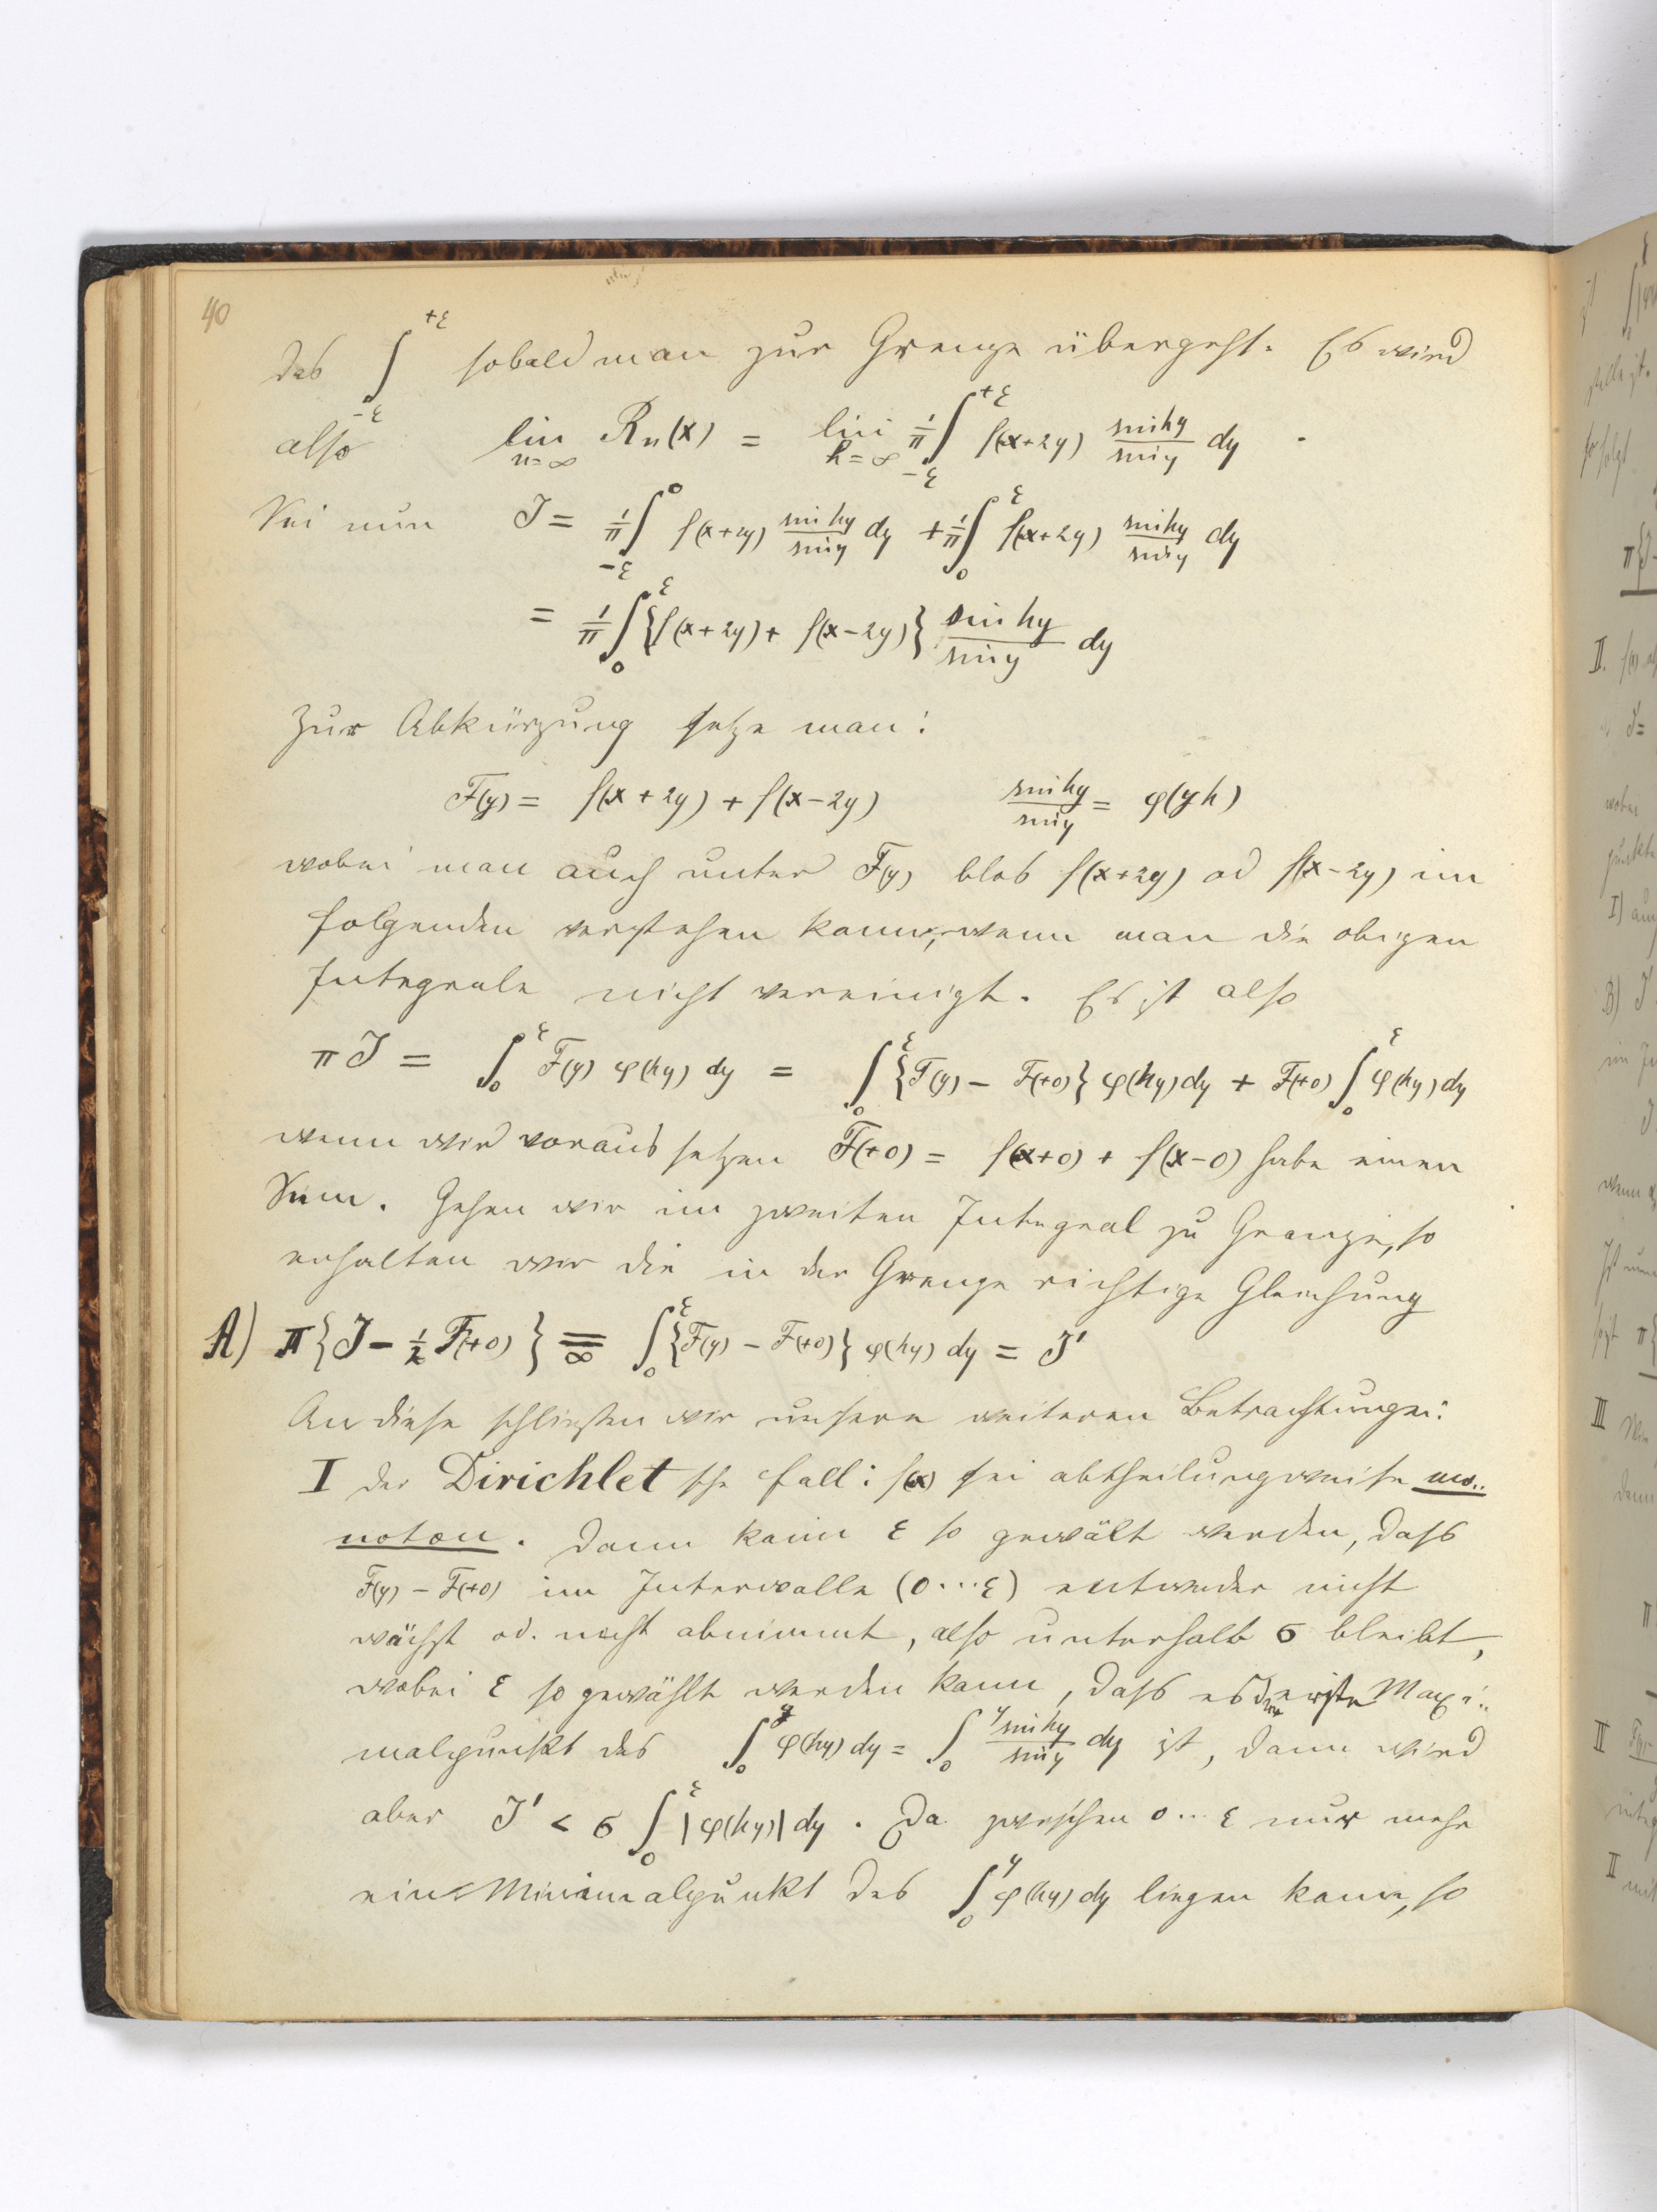 40
das ∫_{-ε}^{+ε} sobald man zur Grenze übergeht. Es wird
also lim_{n=∞} R_n(x) = lim_{h=∞} 1/π ∫_{-ε}^{+ε} f(x+2y) sin hy / sin y dy .
Sei nun J = 1/π ∫_{-ε}^{0} f(x+2y) sin hy / sin y dy + 1/π ∫_{0}^{ε} f(x+2y) sin hy / sin y dy
= 1/π ∫_{0}^{ε} {f(x+2y) + f(x-2y)} sin hy / sin y dy
Zur Abkürzung setze man:
F(y) = f(x+2y) + f(x-2y)   sin hy / sin y = φ(yh)
wobei man auch unter F(y) blos f(x+2y) od f(x-2y) im
folgenden verstehen kann, wenn man die obigen
Integrale nicht vereinigt. Es ist also
π J = ∫_{0}^{ε} F(y) φ(hy) dy = ∫_{0}^{ε} {F(y) - F(+0)} φ(hy) dy + F(+0) ∫_{0}^{ε} φ(hy) dy
wenn wir voraus setzen F(+0) = f(x+0) + f(x-0) habe einen
Sinn. Gehen wir im zweiten Integral zu Grenze, so
erhalten wir die in der Grenze richtige Gleichung
A) π {J - 1/2 F(+0)} =_{∞} ∫_{0}^{ε} {F(y) - F(+0)} φ(hy) dy = J'
An diese schließen wir unsere weiteren Betrachtungen:
I der Dirichlet sche Fall: f(x) sei abtheilungsweise mo..
noton. Dann kann ε so gewält werden, dass
F(y) - F(+0) im Intervalle (0...ε) entweder nicht
wächst od. nicht abnimmt, also unterhalb σ bleibt,
wobei ε so gewählt werden kann, dass es der erste Maxi..
malpunkt des ∫_{0}^{y} φ(hy) dy = ∫_{0}^{y} sin hy / sin y dy ist, dann wird
aber J' < σ ∫_{0}^{ε} |φ(hy)| dy . Da zwischen 0... ε nur mehr
ein Minimalpunkt des ∫_{0}^{y} φ(hy) dy liegen kann, so